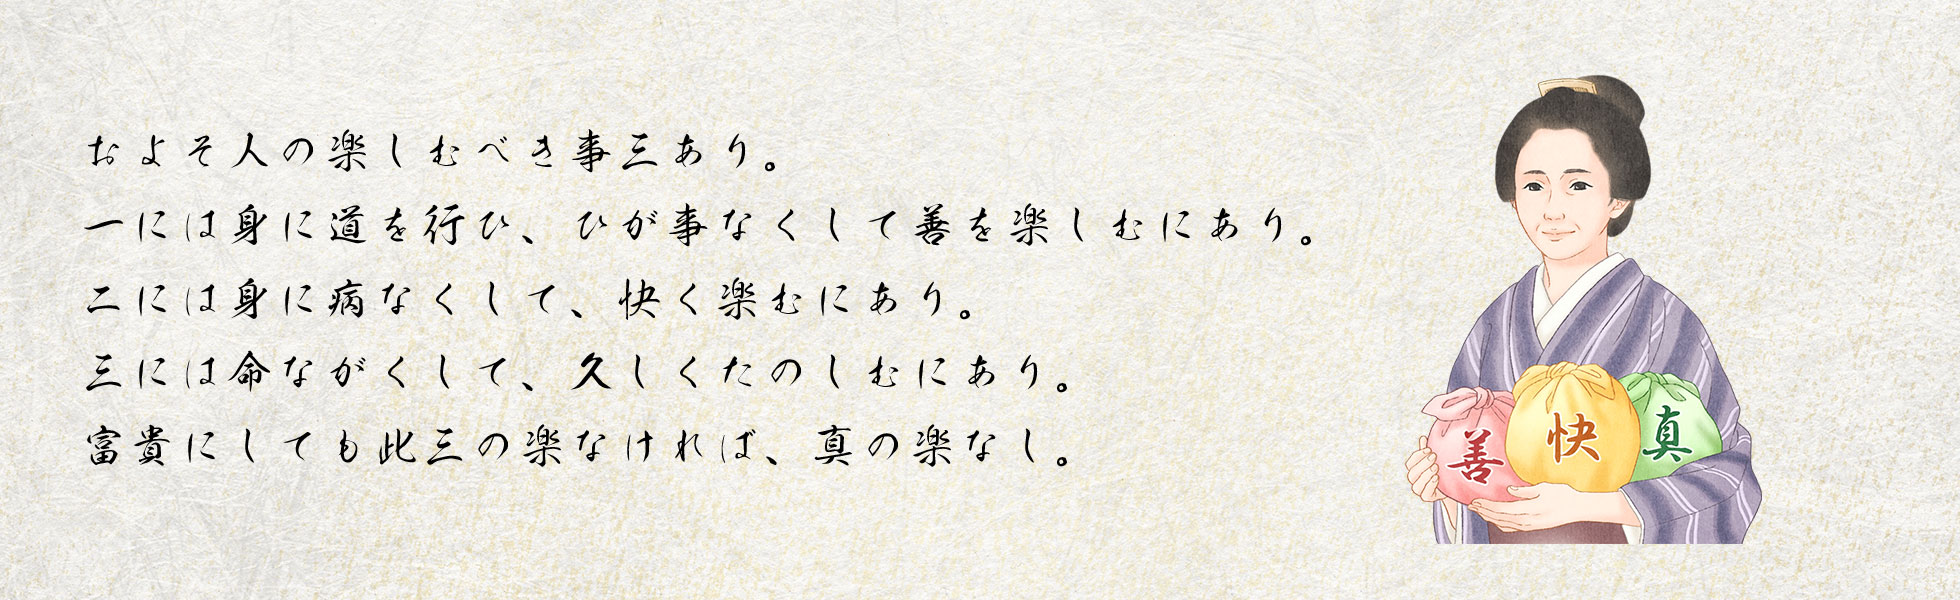 およそ人の楽しむべき事三あり。
一には身に道を行ひ、ひが事なくして善を楽しむにあり。
二には身に病なくして、快く楽むにあり。
三には命ながくして、久しくたのしむにあり。
富貴にしても此三の楽なければ、真の楽なし。
善
快
真